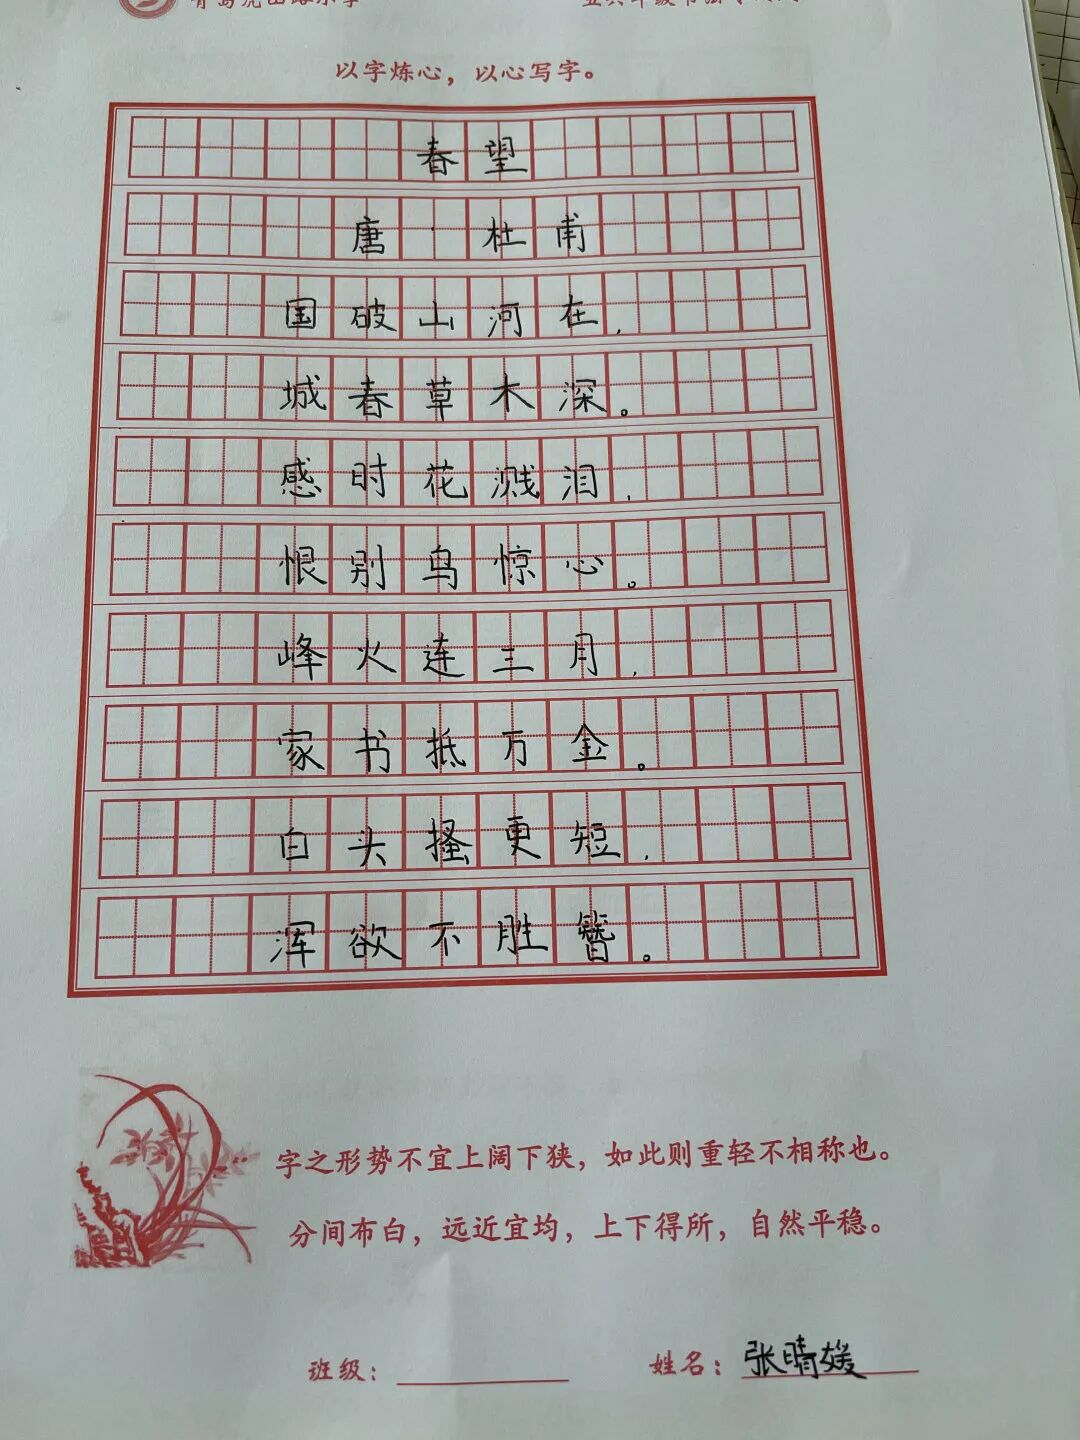 以字炼心，以心写字。
春望
唐·杜甫
国破山河在，
城春草木深。
感时花溅泪，
恨别鸟惊心。
峰火连三月，
家书抵万金。
白头搔更短，
浑欲不胜簪。
字之形势不宜上阔下狭，如此则重轻不相称也。
分间布白，远近宜均，上下得所，自然平稳。
班级：
姓名：张晴媛